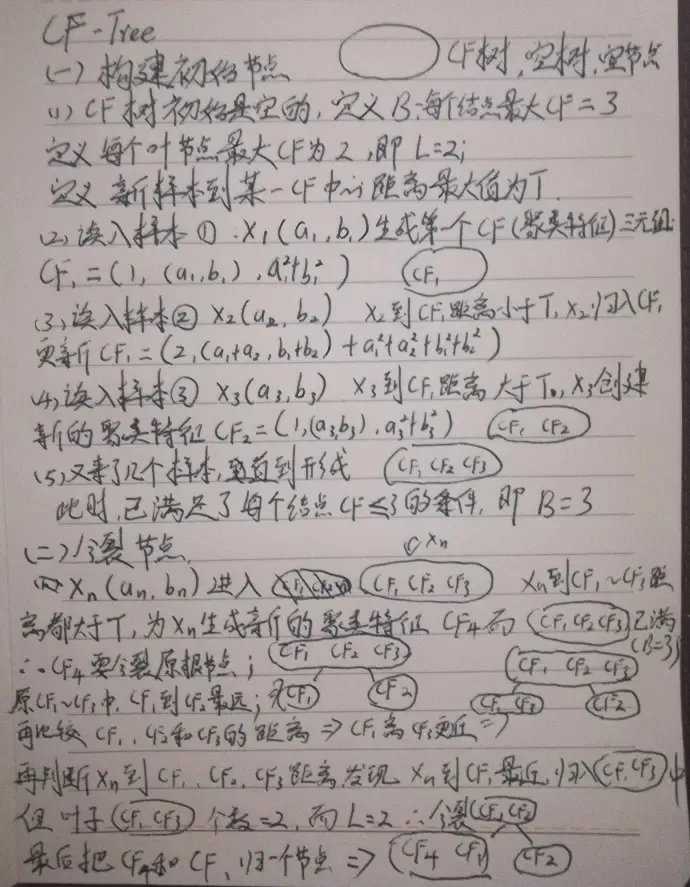 CF-Tree
CF树,空树,空节点
(一)构建初始节点
(1) CF树初始是空的,定义B:每个结点最大CF=3
定义每个叶节点最大CF为2,即L=2;
定义新样本到某一CF中心距离最大值为T.
(2)读入样本① X₁(a₁,b₁)生成第一个CF(聚类特征)三元组:
CF₁=(1,(a₁,b₁),a₁²+b₁²) CF₁
(3)读入样本② X₂(a₂,b₂) X₂到CF₁距离小于T,X₂归入CF₁
更新CF₁=(2,(a₁+a₂,b₁+b₂)+a₁²+a₂²+b₁²+b₂²)
(4)读入样本③ X₃(a₃,b₃) X₃到CF₁距离大于T,X₃创建
新的聚类特征CF₂=(1,(a₃b₃),a₃²+b₃²) CF₁ CF₂
(5)又来了几个样本,直到形成 CF₁ CF₂ CF₃
此时,已满足了每个结点CF≤3的条件,即B=3
(二)分裂节点
Xn
(1) Xn(an,bn)进入 CF₁ CF₂ CF₃ Xn到CF₁~CF₃距
离都大于T,为Xn生成新的聚类特征CF4而 CF₁CF₂CF₃ 已满
(B=3)
∴CF4要分裂原根节点; CF₁ CF₂ CF₃ CF₁ CF₂ CF₃
原CF₁~CF₃中,CF₁到CF₂最远; CF₁ CF2 CF₁ CF₃ CF2
再比较CF₁、CF₂和CF₃的距离⇒CF₁离CF₃更近⇒
再判断Xn到CF₁、CF₂、CF₃距离,发现Xn到CF₁最近,归入 CF₁CF₃ 中
但叶子 CF₁ CF₃ 个数=2,而L=2 ∴分裂 CF₁CF₂
最后把CF4和CF₁归一个节点⇒ CF4 CF₁ CF2